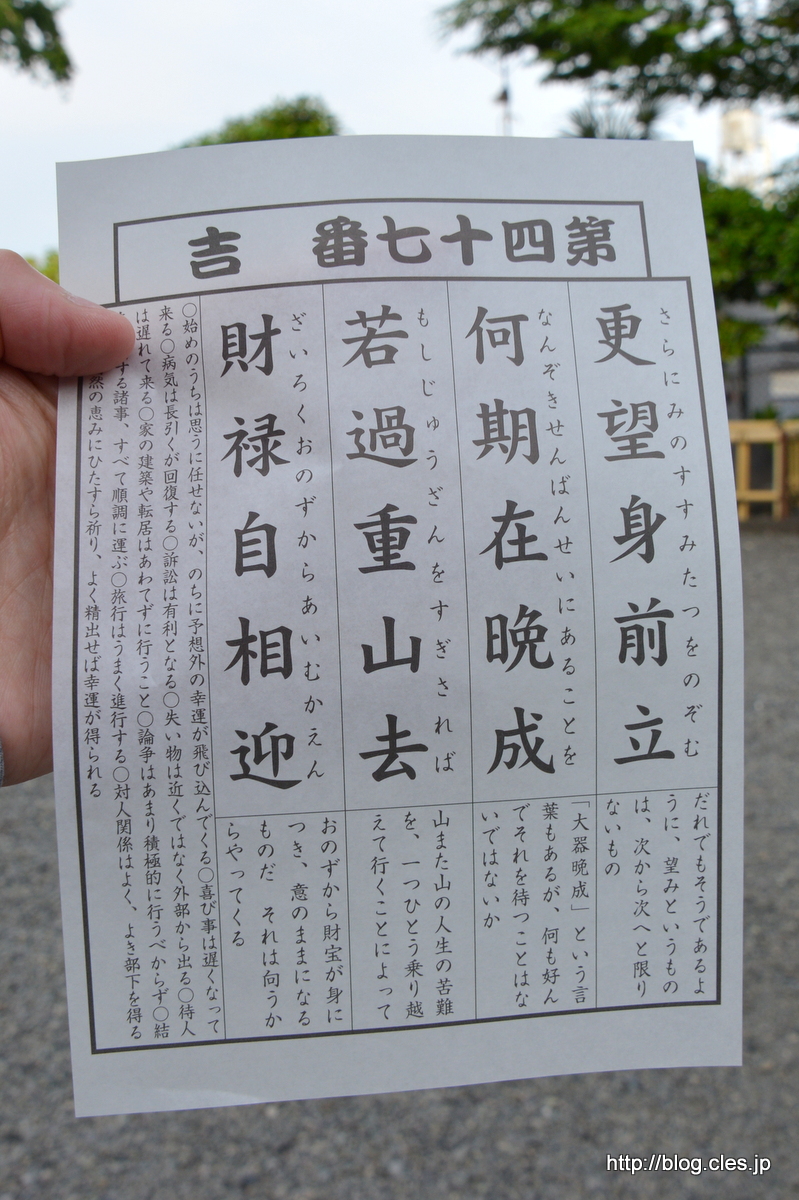 第四十七番 吉
さらにみのすすみたつをのぞむ
更望身前立
だれでもそうであるよ
うに、望みというもの
は、次から次へと限り
ないもの
なんぞきせんばんせいにあることを
何期在晩成
「大器晩成」という言
葉もあるが、何も好ん
でそれを待つことはな
いではないか
もしじゅうざんをすぎされば
若過重山去
山また山の人生の苦難
を、一つひとう乗り越
えて行くことによって
ざいろくおのずからあいむかえん
財禄自相迎
おのずから財宝が身に
つき、意のままになる
ものだ　それは向うか
らやってくる
〇始めのうちは思うに任せないが、のちに予想外の幸運が飛び込んでくる〇喜び事は遅くなって
来る〇病気は長引くが回復する〇訴訟は有利となる〇失い物は近くではなく外部から出る〇待人
は遅れて来る〇家の建築や転居はあわてずに行うこと〇論争はあまり積極的に行うべからず〇結
する諸事、すべて順調に運ぶ〇旅行はうまく進行する〇対人関係はよく、よき部下を得る
然の恵みにひたすら祈り、よく精出せば幸運が得られる
http://blog.cles.jp